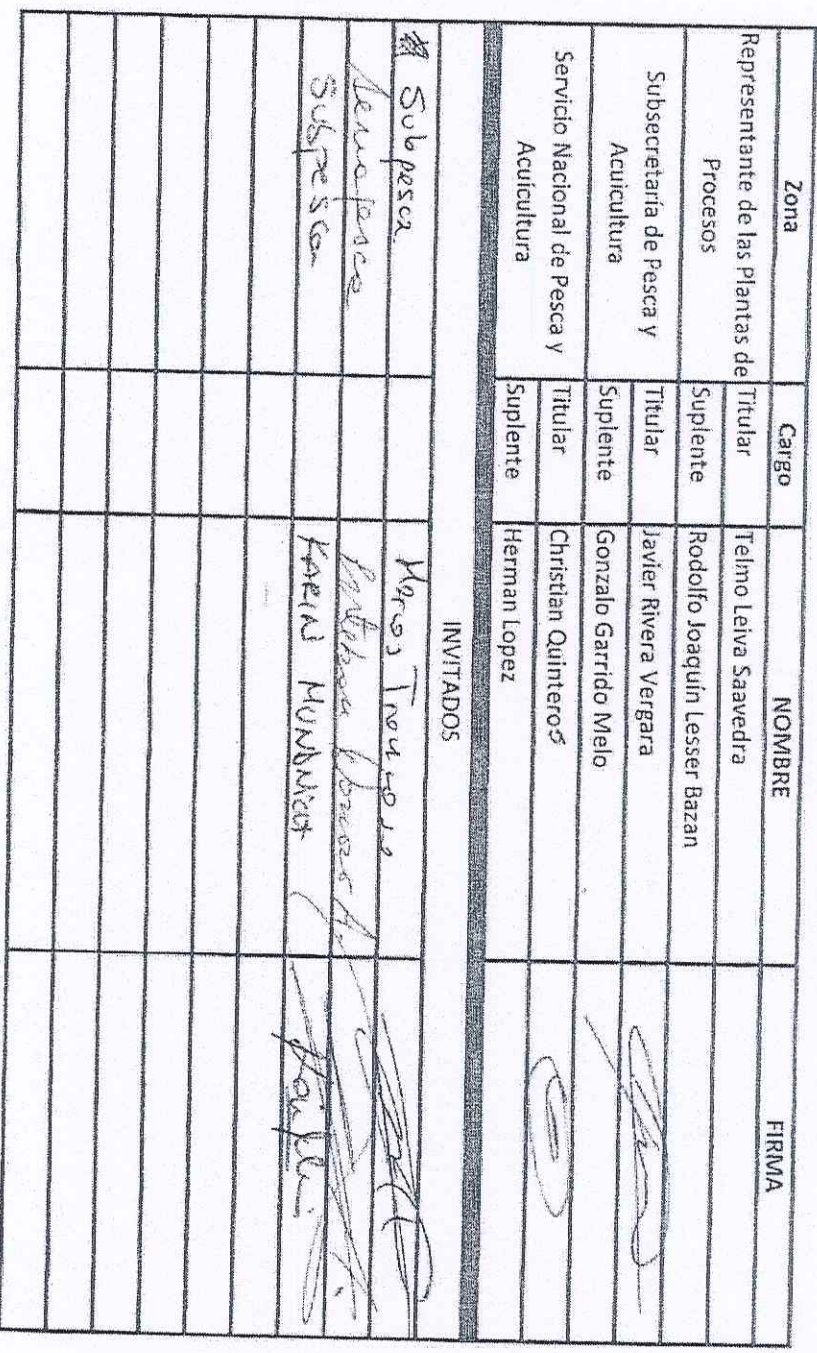 Zona Cargo NOMBRE FIRMA
Representante de las Plantas de Procesos Titular Telmo Leiva Saavedra
Suplente Rodolfo Joaquín Lesser Bazan
Subsecretaría de Pesca y Acuicultura Titular Javier Rivera Vergara
Suplente Gonzalo Garrido Melo
Servicio Nacional de Pesca y Acuicultura Titular Christian Quinteros
Suplente Herman Lopez
INVITADOS
Subpesca Marcos Troncoso
Sernapesca
Subpesca KARIN MUNDNICH